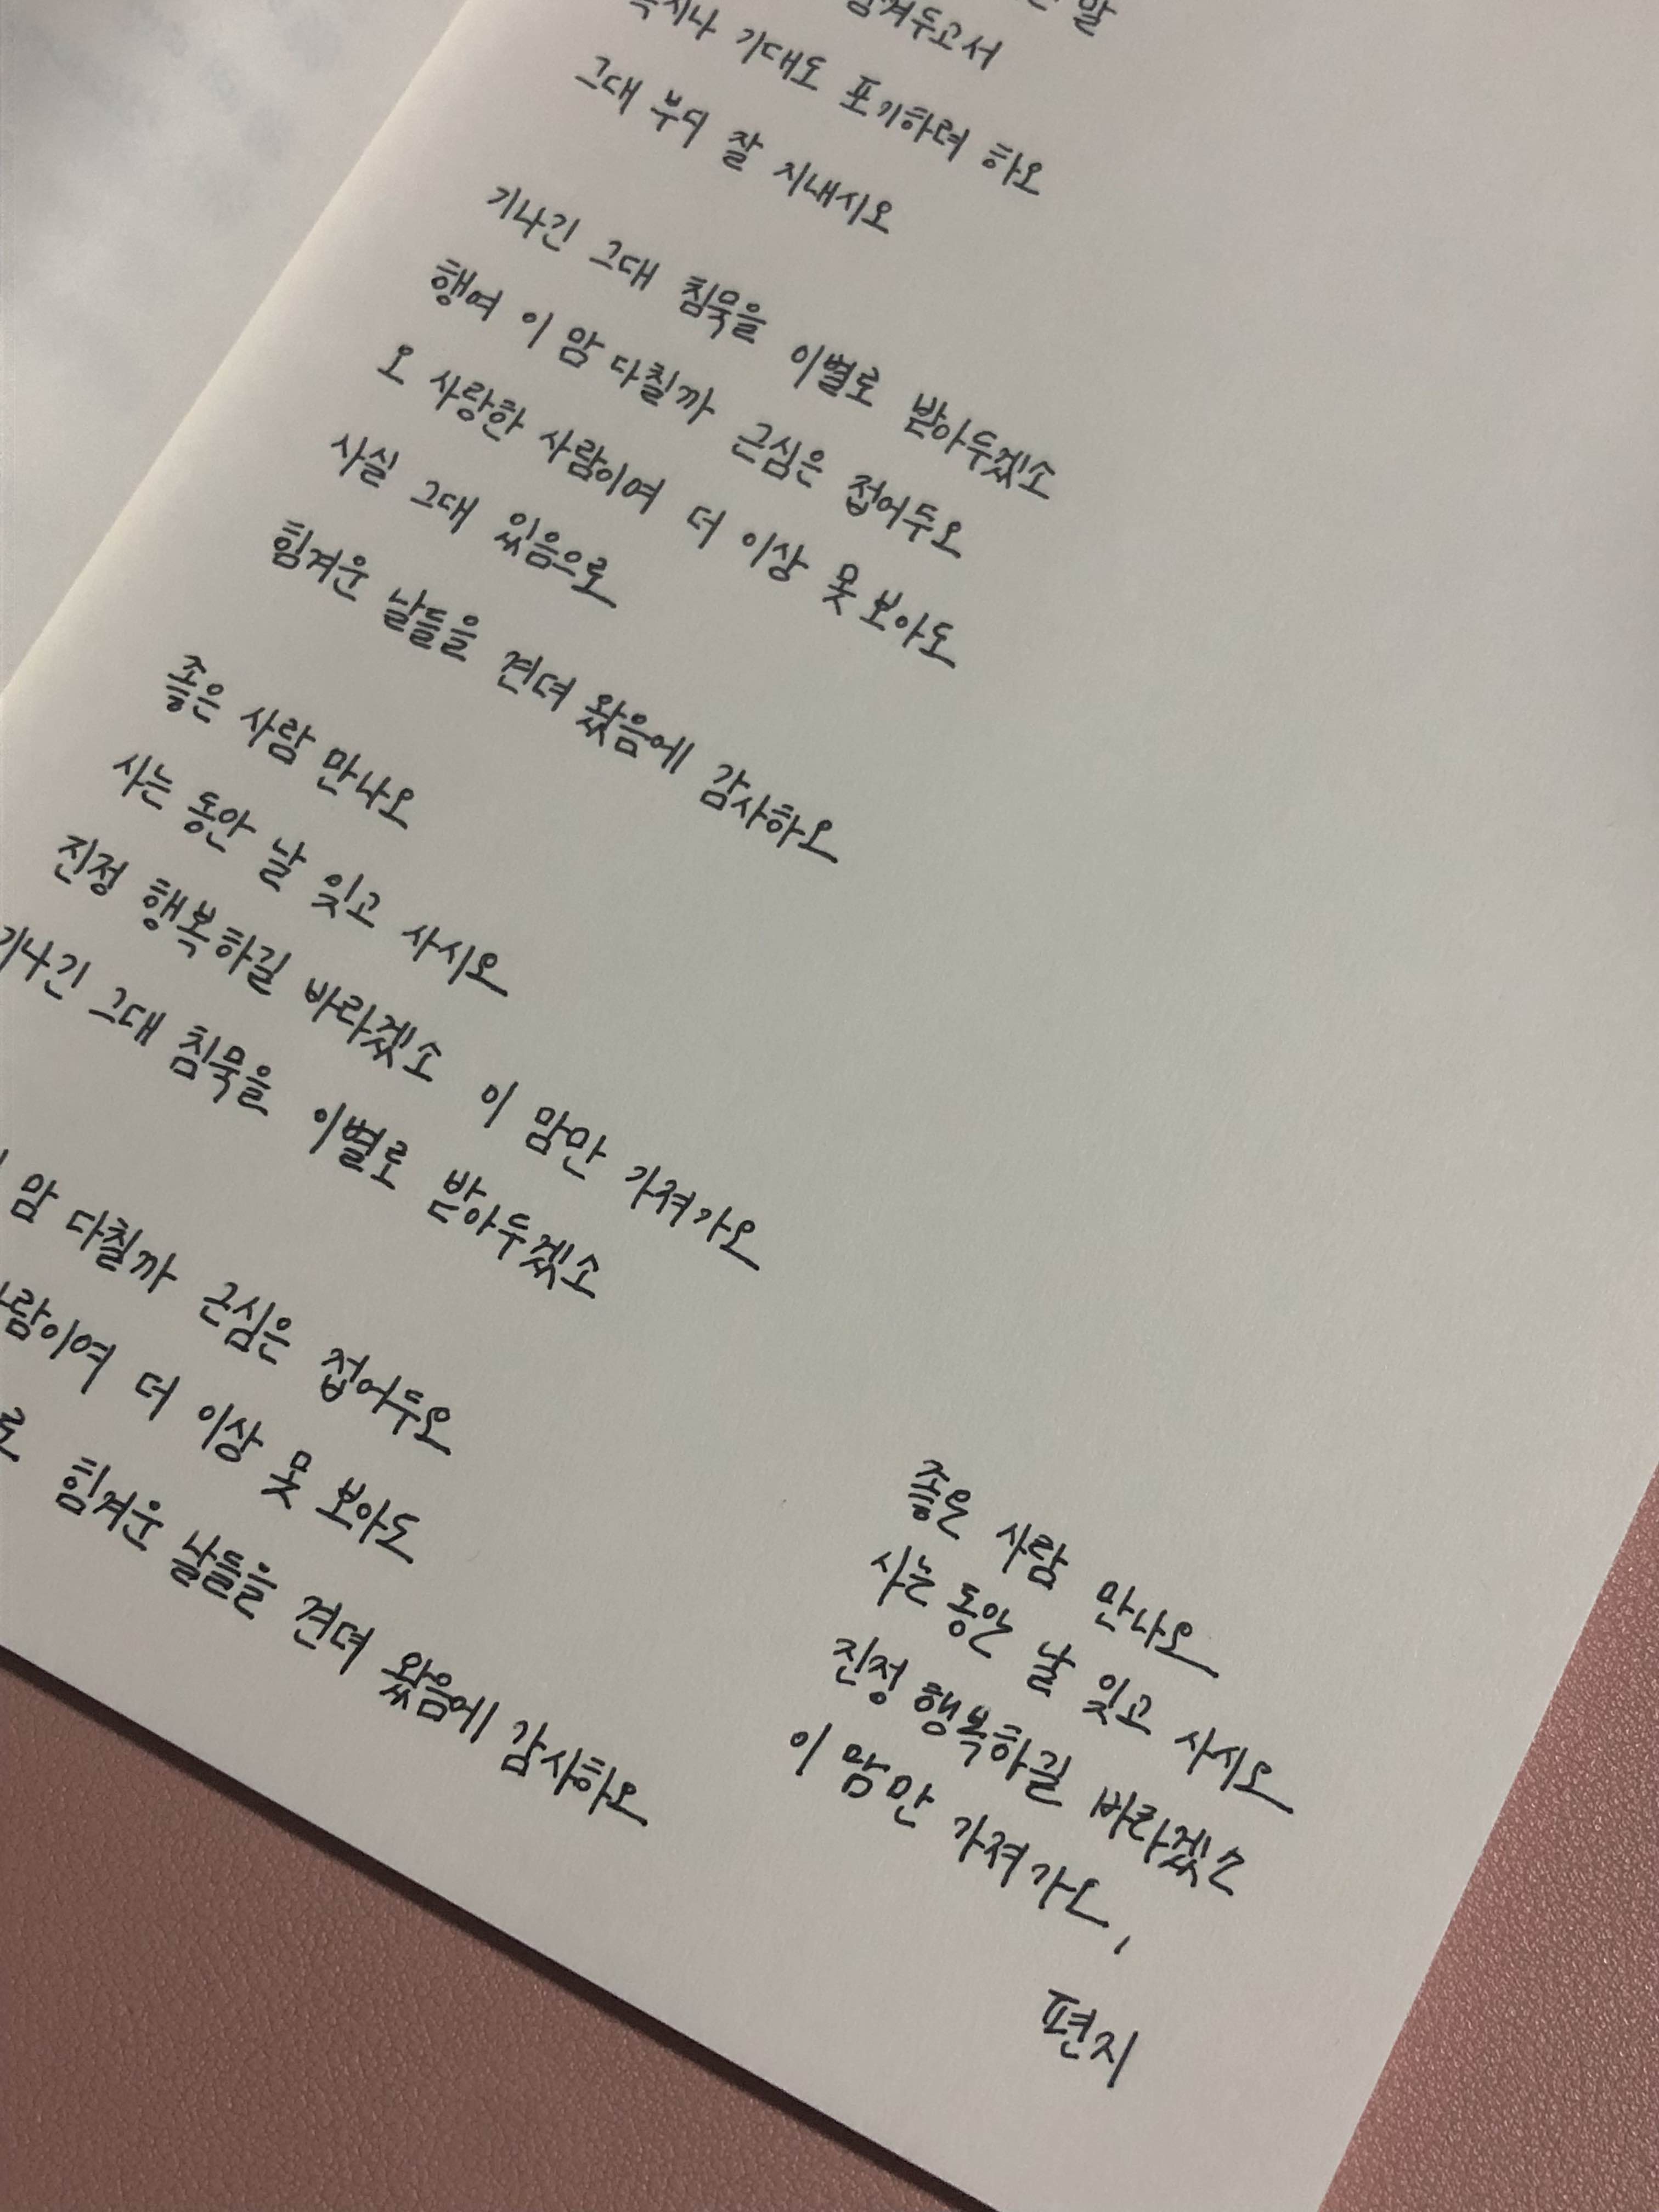 말
겨두고서
기대도 포기하려 하오
그대 부디 잘 지내시오
기나긴 그대 침묵을 이별로 받아두겠소
행여 이 맘 다칠까 근심은 접어두오
오 사랑한 사람이여 더 이상 못 보아도
사실 그대 있음으로
힘겨운 날들을 견뎌 왔음에 감사하오
좋은 사람 만나오
사는 동안 날 잊고 사시오
진정 행복하길 바라겠소 이 맘만 가져가오
기나긴 그대 침묵을 이별로 받아두겠소
맘 다칠까 근심은 접어두오
람이여 더 이상 못 보아도
로 힘겨운 날들을 견뎌 왔음에 감사하오
좋은 사람 만나오
사는 동안 날 잊고 사시오
진정 행복하길 바라겠소
이 맘만 가져가오,
편지